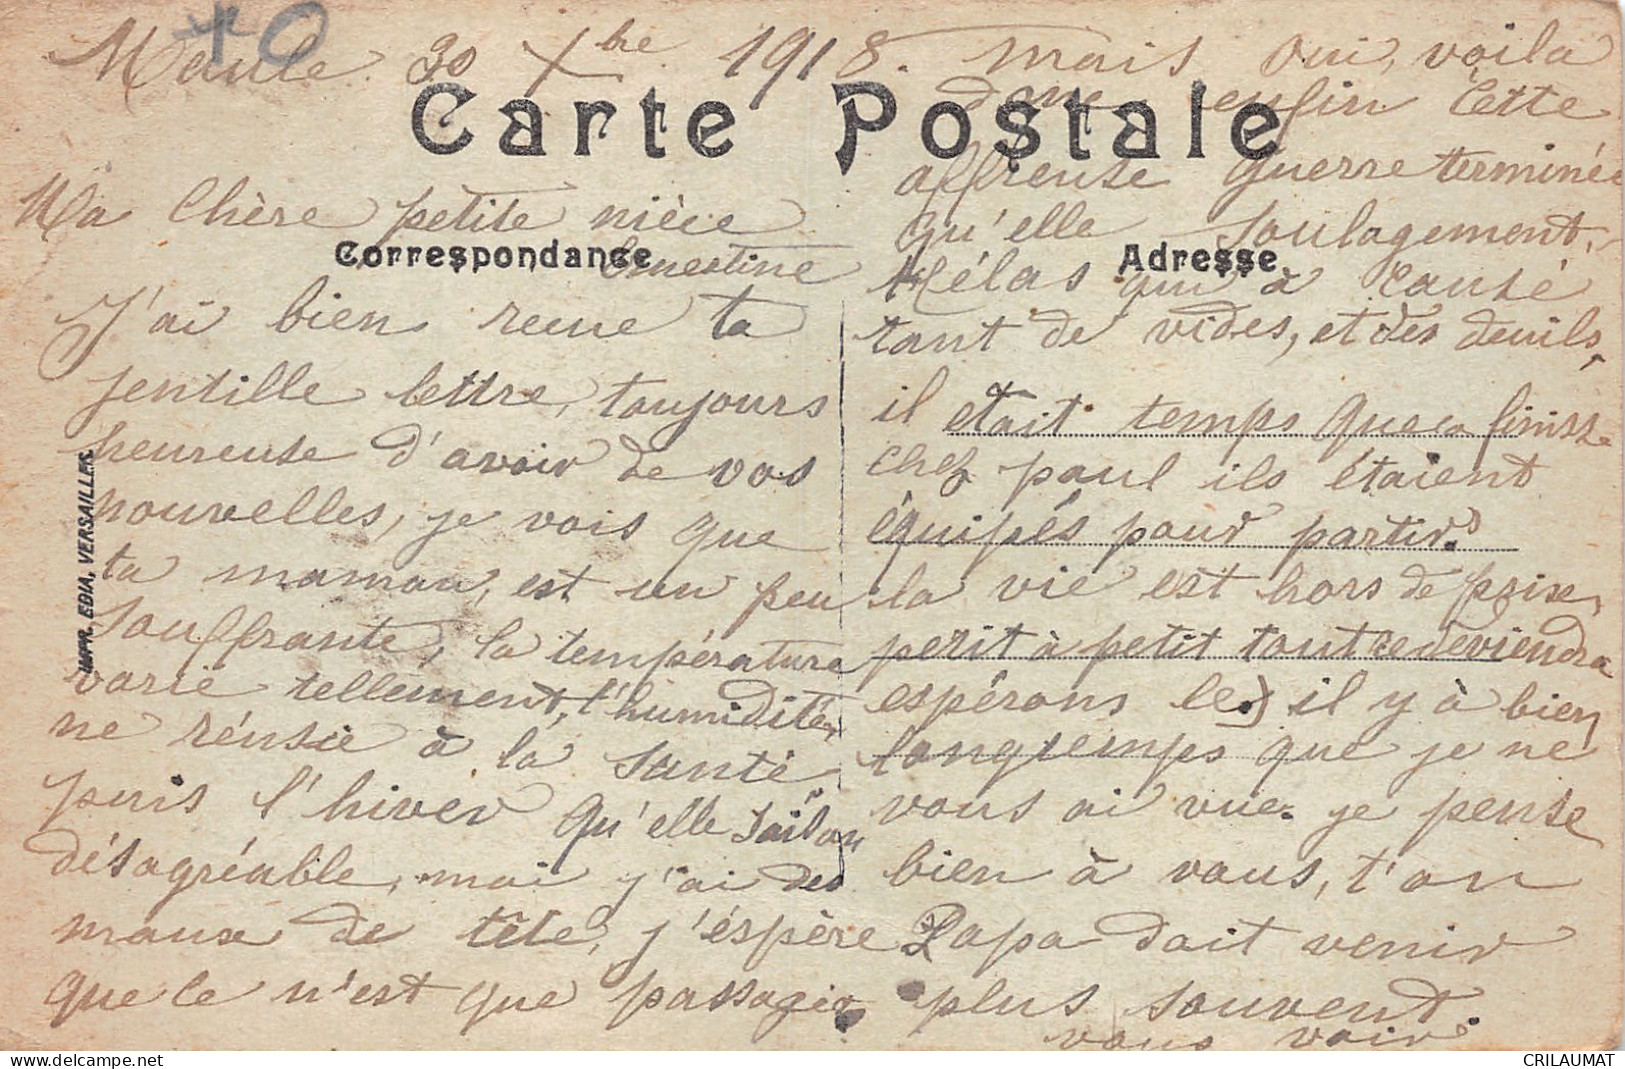 Maule 30 Xbre 1918.
Carte Postale
Correspondance
Ma Chère petite nièce
Ernestine
J'ai bien reçue ta
jentille lettre, toujours
heureuse d'avoir de vos
nouvelles, je vois que
ta maman, est un peu
souffrante, la température
varie tellement, l'humidité,
ne réusie à la santé
puis l'hiver qu'elle saison
désagréable, moi j'ai des
maux de tête, j'éspère
que ce n'est que passagé
IMPR. EDIA, VERSAILLES
Adresse
mais oui, voila
donc enfin cette
affreuse guerre terminée
qu'elle soulagement,
Hélas qui à causé
tant de vides, et des deuils,
il etait temps que ca finisse
chez paul ils étaient
équipés pour partir.
la vie est hors de prix,
petit à petit tout redeviendra
espérons le, il y à bien
longtemps que je ne
vous ai vue. je pense
bien à vous, t'on
Papa doit venir
plus souvent.
vous voir
CRILAUMAT